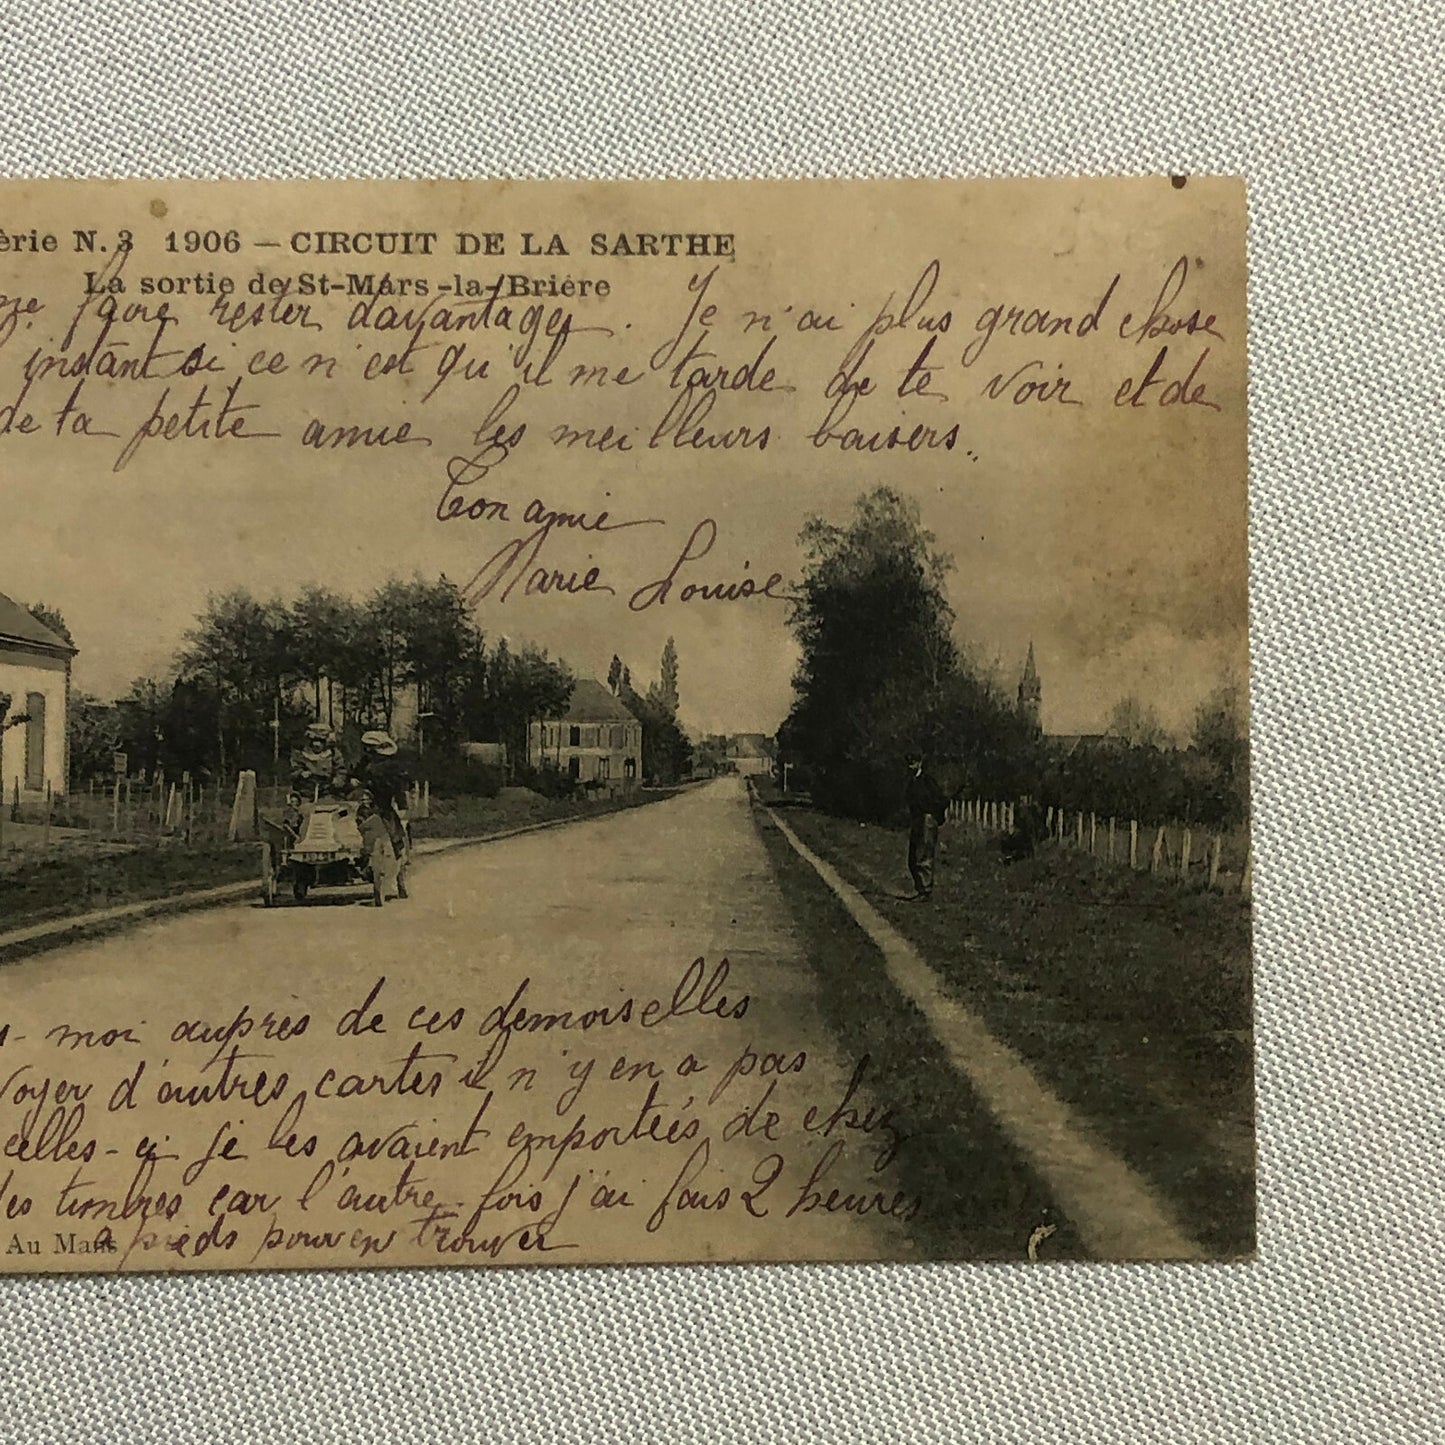 érie N. 3 1906 — CIRCUIT DE LA SARTHE
La sortie de St-Mars-la-Brière
me faire rester davantages. Je n'ai plus grand chose
instant si ce n'est qu'il me tarde de te voir et de
de ta petite amie les meilleurs baisers..
Ton amie
Marie Louise
moi auprès de ces demoiselles
voyer d'autres cartes il n'y en a pas
celles-ci je les avaient emporteés de chez
des timbres car l'autre fois j'ai fais 2 heures
Au Mans
a pieds pour en trouver